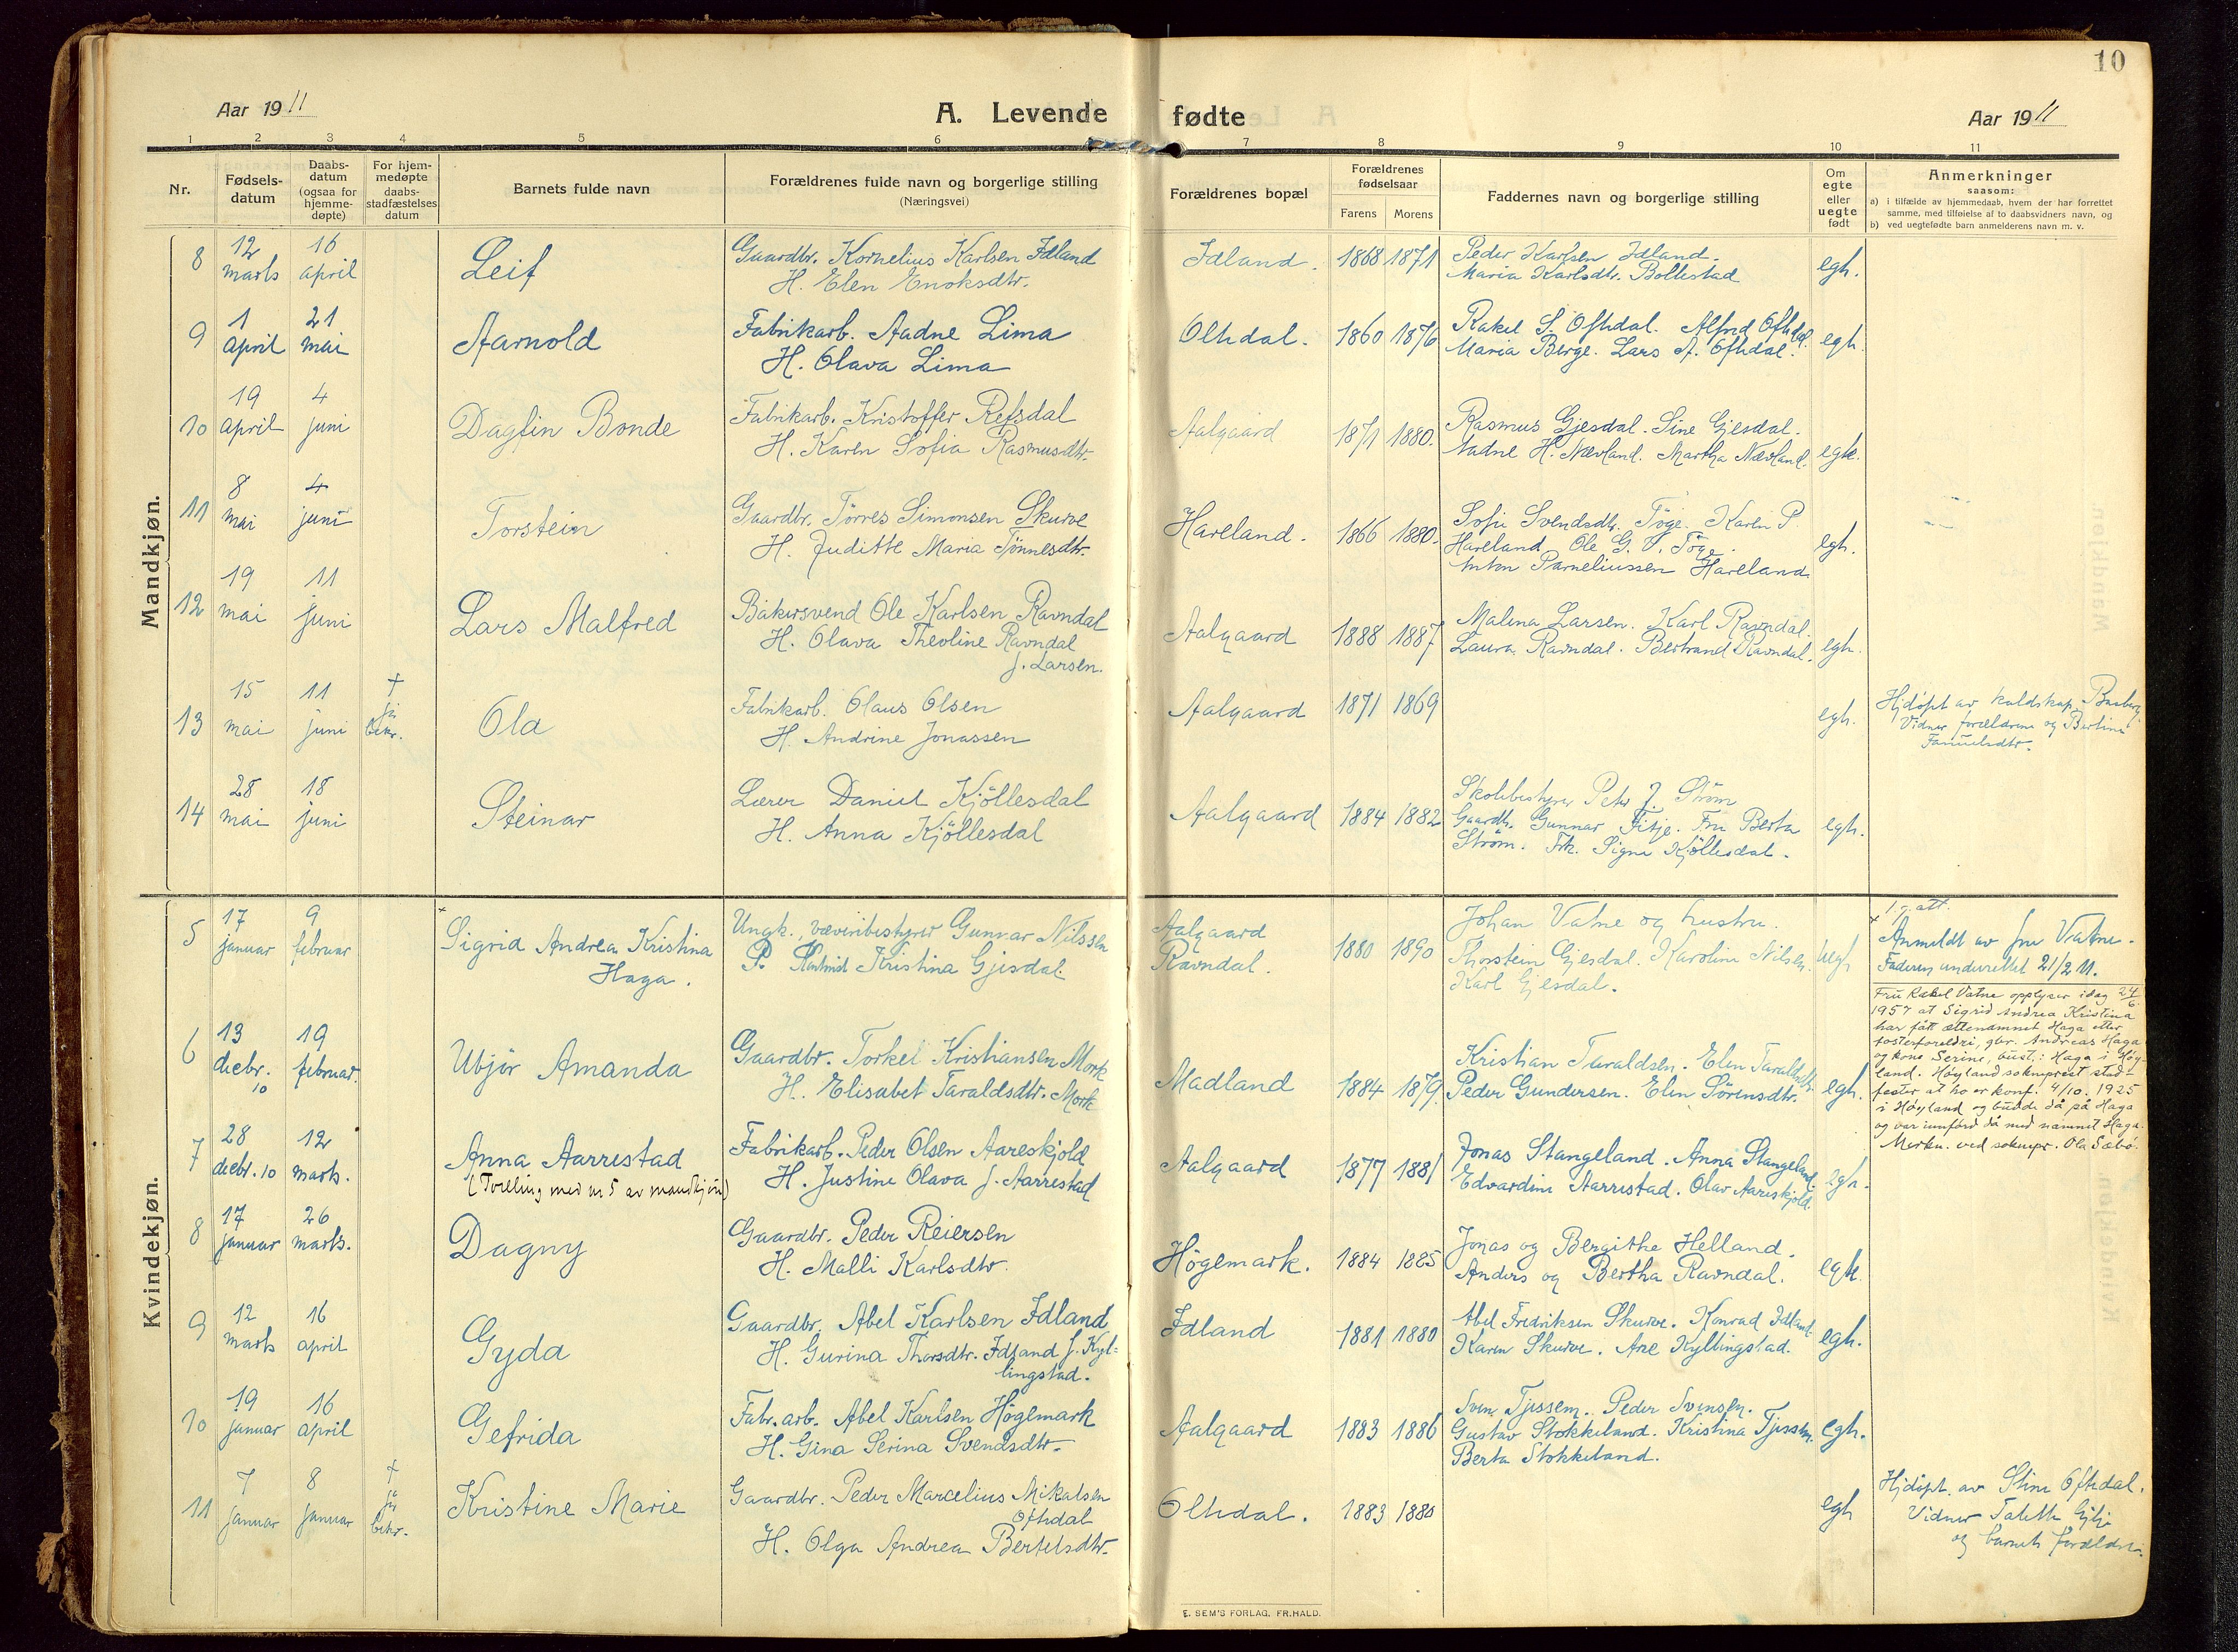 10
Aar 1911
A. Levende fødte
Aar 1911
1 2 3 4 5 6 7 8 9 10 11
Nr.
Fødsels-
datum
Daabs-
datum
(ogsaa for
hjemme-
døpte)
For hjem-
medøpte
daabs-
stadfæstelses
datum
Barnets fulde navn
Forældrenes fulde navn og borgerlige stilling
(Næringsvei)
Forældrenes bopæl
Forældrenes
fødselsaar
Farens Morens
Faddernes navn og borgerlige stilling
Om
egte
eller
uegte
født
Anmerkninger
saasom:
a) i tilfælde av hjemmedaab, hvem der har forrettet
samme, med tilføielse af to daabsvidners navn, og
b) ved uegtefødte barn anmelderens navn m. v.
Mandkjøn.
8 12 marts 16 april Leif
Gaardbr. Kornelius Karlsen Idland
H. Elen Enoksdtr.
Idland. 1868 1871
Peder Karlsen Idland.
Maria Karlsdtr. Bollestad
egh.
9 1 april 21 mai Aarnold
Fabrikarb. Aadne Lima
H. Olava Lima
Oltedal. 1860 1876
Rakel S. Oftedal. Alfred Oftedal.
Maria Berge. Lars A. Oftedal.
egh.
10 19 april 4 juni Dagfin Bonde
Fabrikarb. Kristoffer Refsdal
H. Karen Sofia Rasmusdtr.
Aalgaard 1871 1880.
Rasmus Gjesdal. Sine Gjesdal.
Aadne H. Nævland. Martha Nævland.
egte.
11 8 mai 4 juni Torstein
Gaardbr. Törres Simonsen Skurve
H. Juditte Maria Tönnesdtr.
Hareland. 1866 1880.
Sofie Svendsdtr. Töge. Karen P.
Hareland Ole G. Töge.
Anton Parneliussen Hareland
egh.
12 19 mai 11 juni Lars Malfred
Bakersvend Ole Karlsen Ravndal
H. Olava Theoline Ravndal
f. Larsen.
Aalgaard 1888 1887
Malena Larsen. Karl Ravndal.
Laura Ravndal. Bertrand Ravndal.
egh.
13 15 mai 11 juni † ja bekr. Ola
Fabrikarb. Olaus Olsen
H. Andrine Jonassen
Aalgaard 1871 1869
egh.
Hjdöpt av
Vidner forældrene og Bertine
14 28 mai 18 juni Steinar
Lærer Daniel Kjöllesdal
H. Anna Kjöllesdal
Aalgaard 1884 1882
Skolebestyrer Peter J. Ström
Gaardb. Gunnar Fitje. Fru Berta
Ström. Frk. Signe Kjöllesdal.
egh.
Kvindekjøn.
5 17 januar 9 februar × Sigrid Andrea Kristina
Haga.
Ungk., væveribestyrer Gunnar Nilssen
P. Kristina Gjesdal.
Aalgaard
Ravndal. 1880 1890
Johan Vatne og hustru.
Thorstein Gjesdal. Karoline Nilsen.
Karl Gjesdal.
uegh
×
Anmeldt av fru Vatne.
Faderen underrettet 21/2 11.
Fru Rakel Vatne opplyser idag 24/6
1957 at Sigrid Andrea Kristina
har fått ættenamnet Haga etter
fosterforeldri, gbr. Andreas Haga
og kone Serine, bust. i Haga i Høy-
land. Høyland sokneprest stad-
fester at ho er konf. 4/10. 1925
i Høyland og budde då på Haga
og var innførd då med namnet Haga.
Merkn. ved soknepr. Ola Sæbö.
6 13 decbr. 10 19 februar. Ubjör Amanda
Gaardbr. Torkel Kristiansen Mork
H. Elisabet Taraldsdtr. Mork
Madland 1884 1879.
Kristian Taraldsen. Elen Taraldsdtr.
Peder Gundersen. Elen Sörensdtr.
egh.
7 28 decbr. 10 12 marts. Anna Aarrestad
(Tvilling med nr 5 av mandkjön)
Fabrikarb. Peder Olsen Aareskjold
H. Justine Olava f. Aarrestad
Aalgaard 1877 1881
Jonas Stangeland. Anna Stangeland.
Edvardine Aarrestad. Olav Aareskjold.
egh.
8 17 januar 26 marts. Dagny
Gaardbr. Peder Reiersen
H. Malli Karlsdtr.
Högemark. 1884 1885
Jonas og Bergithe Helland.
Anders og Bertha Ravndal.
egte.
9 12 marts 16 april Gyda
Gaardbr. Abel Karlsen Idland
H. Gurina Thorsdtr. Idland f. Kyl-
lingstad.
Idland 1881 1880
Abel Fredriksen Skurve. Konrad Idland.
Karen Skurve. Ane Kyllingstad.
egh.
10 19 januar 16 april Gefrida
Fabr. arb. Abel Karlsen Högemark
H. Gina Serina Svendsdtr.
Aalgaard 1883 1886
Sven Tjessem. Peder Svensen.
Gustav Stokkeland. Kristina Tjessem.
Berta Stokkeland.
egh.
11 7 januar 8 januar † ja bekr. Kristine Marie
Gaardbr. Peder Marcelius Mikalsen
Oftedal
H. Olga Andrea Bertelsdtr.
Oltedal. 1883 1880
egh
Hjdöpt. av Stine Oftedal.
Vidner Talette Gilje
og barnets forældre.
E. SEM'S FORLAG, FR.HALD.